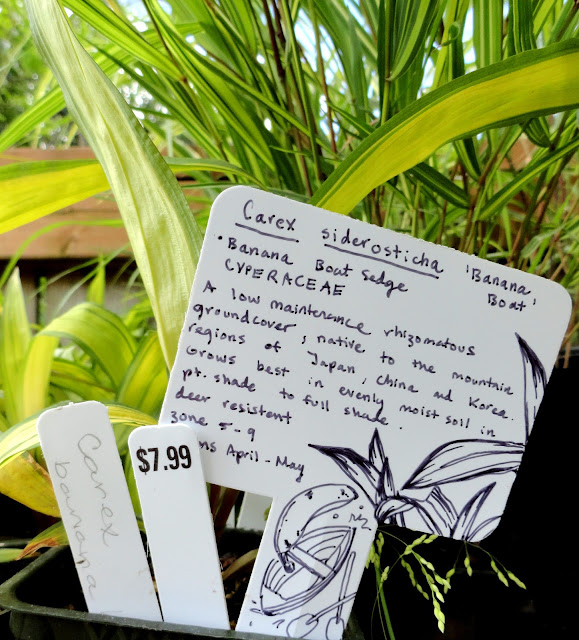 Carex siderosticha 'Banana Boat'
• Banana Boat Sedge
CYPERACEAE
A low maintenance rhizomatous
groundcover, native to the mountain
regions of Japan, China and Korea.
Grows best in evenly moist soil in
pt. shade to full shade.
deer resistent
zone 5-9
ms April - May
Carex
banana
$7.99